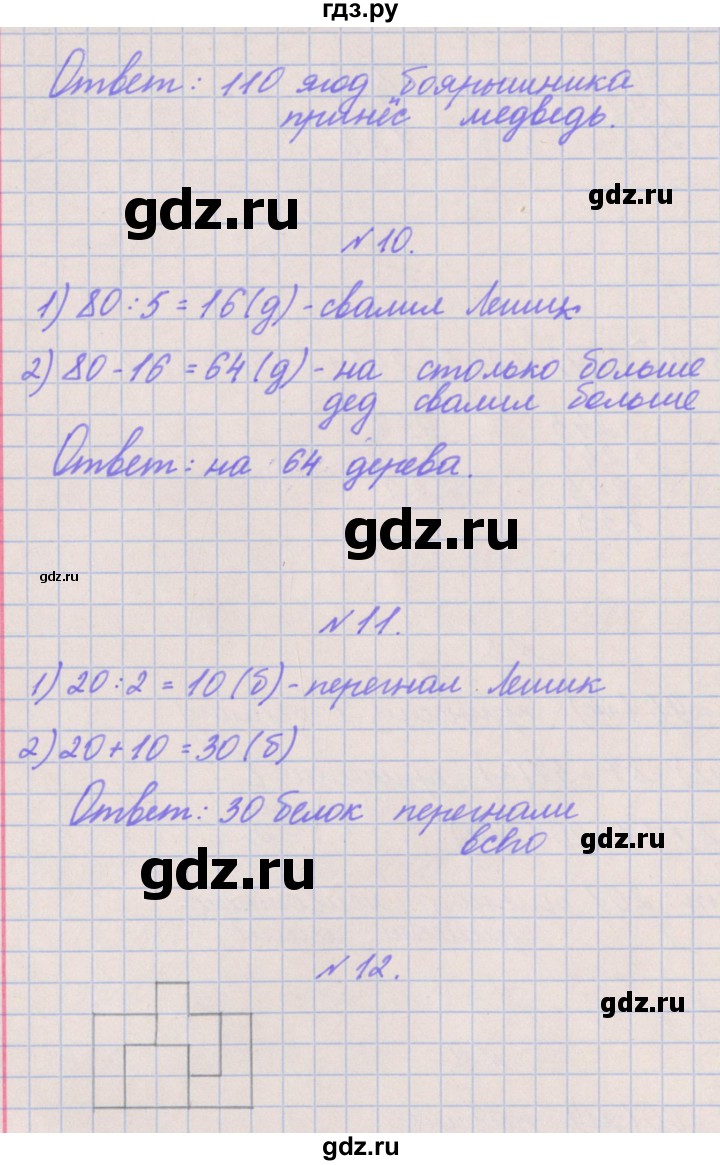 гдз.ру
Ответ: 110 ягод боярышника
принёс медведь.
gdz.ru
gdz.ru
№ 10.
1) 80 : 5 = 16 (д) - свалил Лешик
2) 80 - 16 = 64 (д) - на столько больше
дед свалил больше
Ответ: на 64 дерева.
gdz.ru
gdz.ru
№ 11.
1) 20 : 2 = 10 (б) - перегнал Лешик
2) 20 + 10 = 30 (б)
Ответ: 30 белок перегнали
всего
gdz.ru
gdz.ru
№ 12.
gdz.ru
gdz.ru